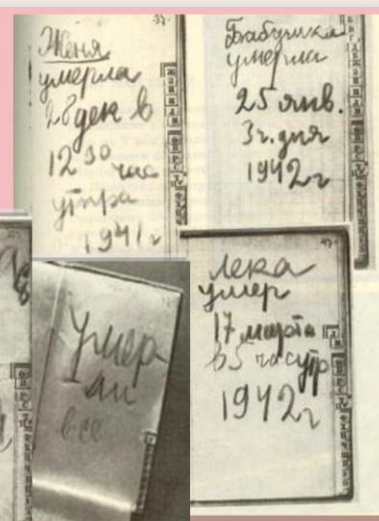 Женя
умерла
28 дек в
12 30 час
утра
1941 г
Бабушка
умерла
25 янв.
3 ч. дня
1942 г
Лека
умер
17 марта
в 5 час утр
1942 г
Умер
ли
все